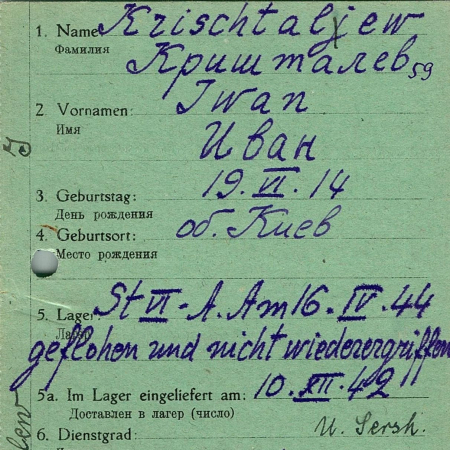 1. Name Krischtaljew
Фамилия
Кришталев 59
2 Vornamen: Iwan
Имя
Иван
3. Geburtstag: 19. VI. 14
День рождения
4. Geburtsort: об. Киев
Место рождения
5. Lager: St VI-A. Am 16. IV. 44
Лагерь
geflohen und nicht wiederergriffen
5a. Im Lager eingeliefert am: 10. XII. 42
Доставлен в лагерь (число)
6. Dienstgrad: U. Sersh.